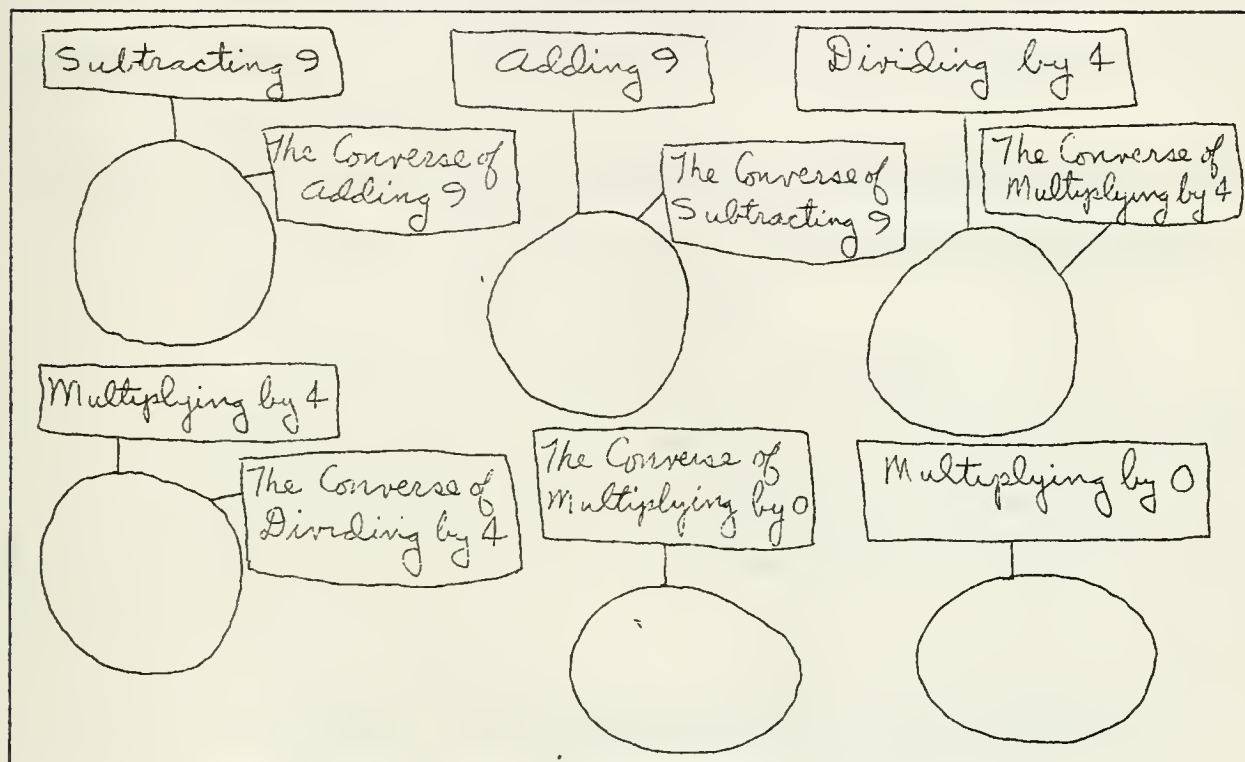 Subtracting 9
The Converse of
Adding 9
Adding 9
The Converse of
Subtracting 9
Dividing by 4
The Converse of
Multiplying by 4
Multiplying by 4
The Converse of
Dividing by 4
The Converse of
Multiplying by 0
Multiplying by 0